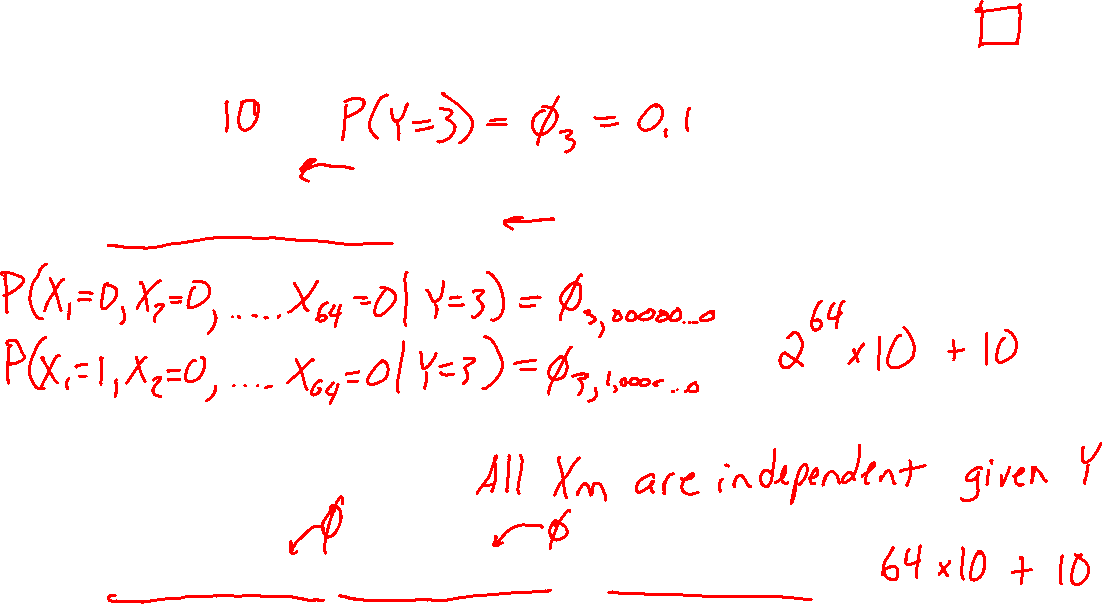 10 P(Y=3) = ϕ₃ = 0.1
P(X₁=0, X₂=0, ..... X₆₄=0 | Y=3) = ϕ₃,₀₀₀₀₀...₀
P(X₁=1, X₂=0, .... X₆₄=0 | Y=3) = ϕ₃,₁,₀₀₀₀...₀
2⁶⁴ × 10 + 10
All Xm are independent given Y
ϕ ϕ
64 × 10 + 10